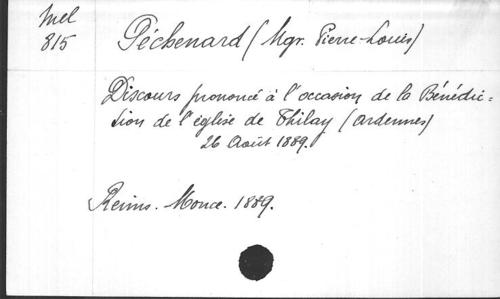 Mel
815
Péchenard (Mgr. Pierre-Louis)
Discours prononcé à l'occasion de la Bénédic=
tion de l'église de Thilay (Ardennes)
26 Août 1889.
Reims. Monce. 1889.